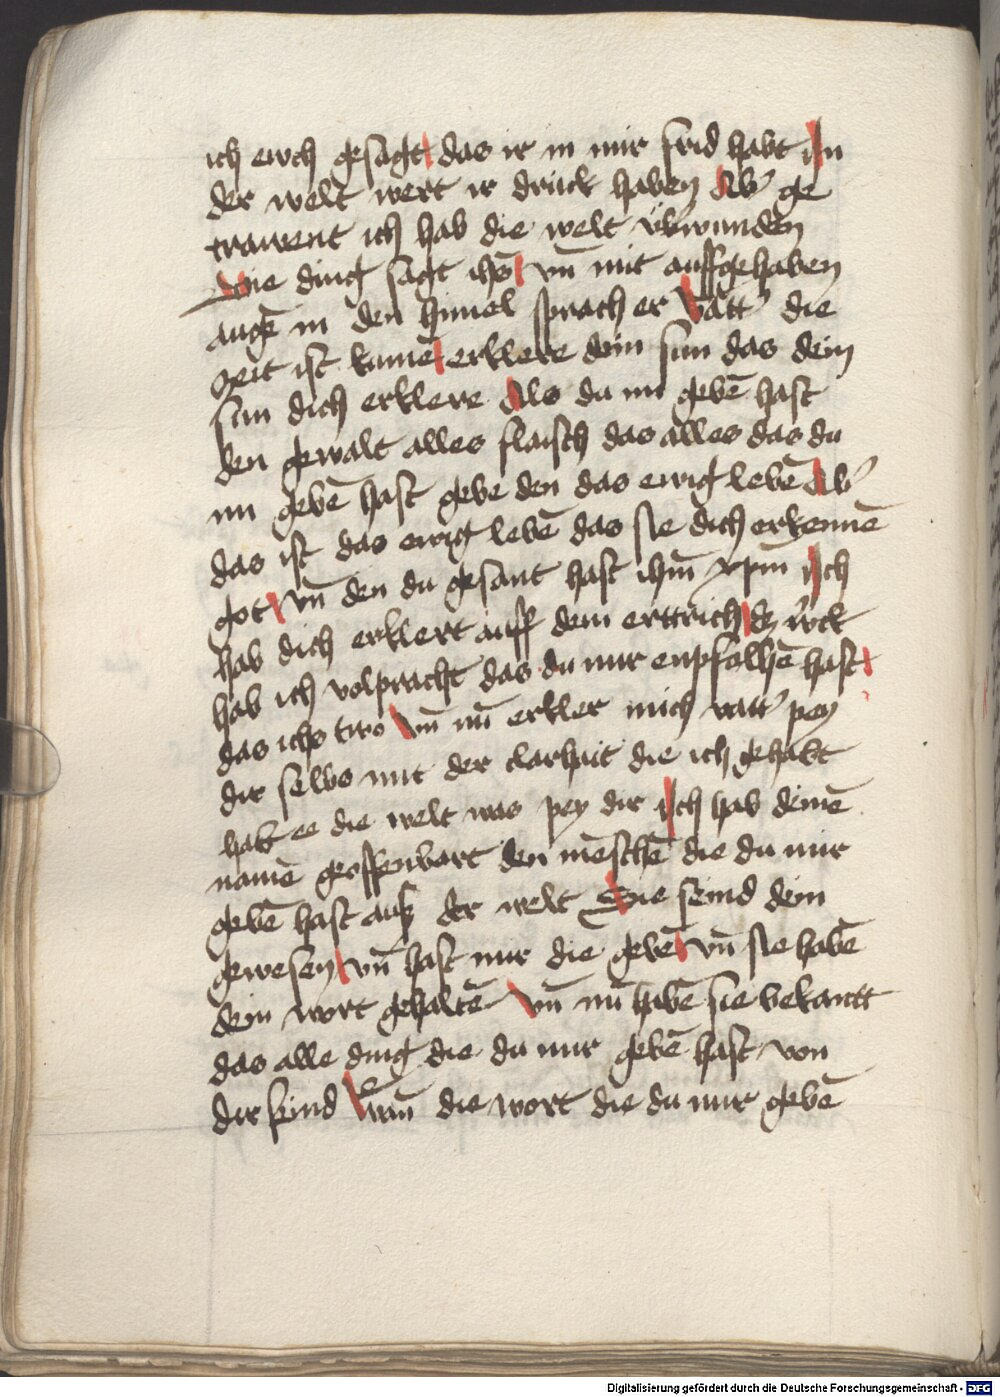 ich ewch gesagt das ir in mir frid habt Jn
der welt wert ir druck haben Ab' ge
trawent ich hab die welt vb'wunden
Die ding sagt ihs vn̄ mit auffgehaben
augē in den himel sprach er Vatt' die
zeit ist kumē erklere dein sun das dein
sun dich erklere Als du im gebē hast
den gewalt alles flaisch das alles das du
im gebē hast gebe den das ewig lebē Ab'
das ist das ewig lebē das sie dich erkennē
got vn̄ den du gesant hast ihm̄ xpm̄ Jch
hab dich erklert auff dem erttrich dz w'ck
hab ich volpracht das du mir enpfolhē hast
das ichs two vn̄ nū erkler mich vatt' pey
dir selbs mit der clarhait die ich gehabt
hab ee die welt was pey dir Jch hab deinē
namē geoffenbart den mēschē die du mir
gebē hast auß der welt Sie seind dein
gewesen vn̄ hast mir die gebē vn̄ sie habē
dein wort gehaltē Vn̄ nū habē sie bekantt
das alle ding die du mir gebē hast von
dir seind Wan̄ die wort die du mir gebē
Digitalisierung gefördert durch die Deutsche Forschungsgemeinschaft - DFG